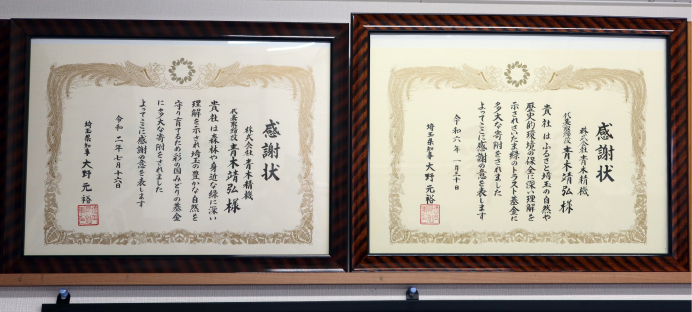 感謝状
株式会社 青木精機
代表取締役 青木靖弘様
貴社は森林や身近な緑に深い
理解を示され埼玉の豊かな自然を
守り育てるため彩の国みどりの基金
に多大な寄附をされました
よってここに感謝の意を表します
令和二年七月十六日
埼玉県知事 大野元裕
感謝状
株式会社 青木精機
代表取締役 青木靖弘様
貴社はふるさと埼玉の自然や
歴史的環境の保全に深い理解を
示されさいたま緑のトラスト基金に
多大な寄附をされました
よってここに感謝の意を表します
令和六年一月三十日
埼玉県知事 大野元裕